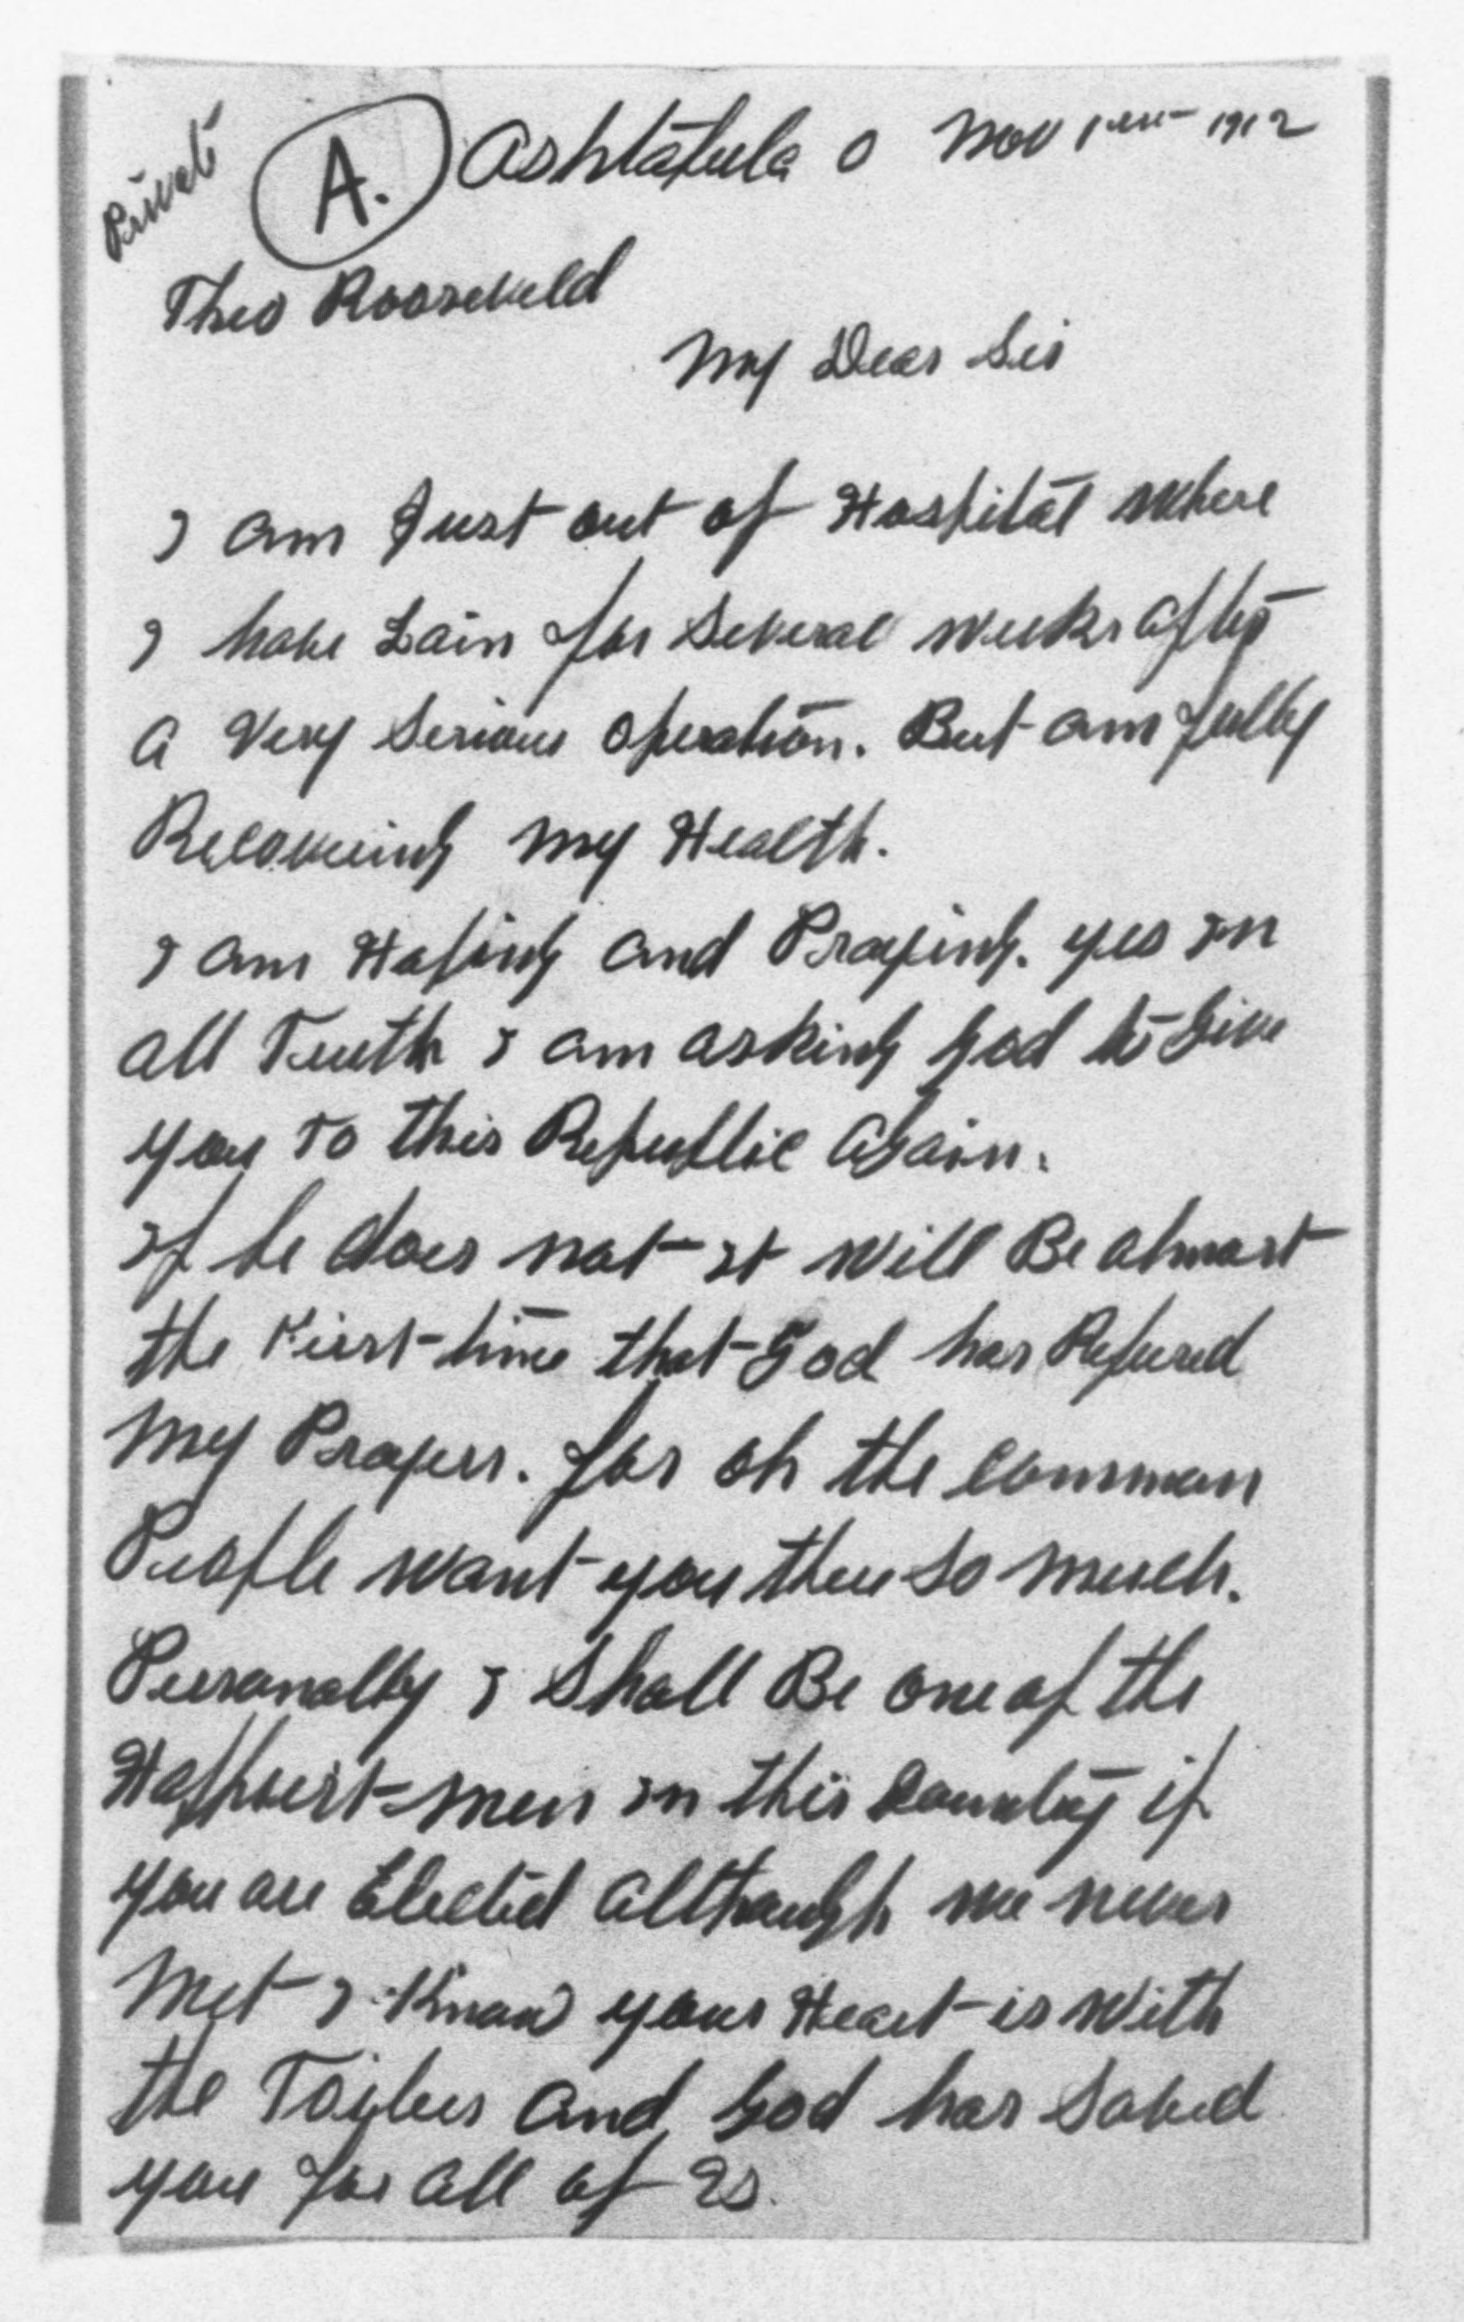 Private
A.
Ashtabula O Nov 1 1912
Theo Rooseveld
My Dear Sir
I am Just out of Hospital where
I have Lain for Several weeks after
a Very Serious operation. But am fully
Recovering my Health.
I am Hoping and Praying. yes in
all Truth I am asking God to Give
you To this Republic Again.
if he does not it will Be almost
the First time that God has Refused
my Prayers. for oh the common
People want you there so much.
Personally I Shall Be one of the
Happiest men in this Country if
you are Elected Although we never
Met I Know your Heart is with
the Toilers and God has Saved
you for all of us.